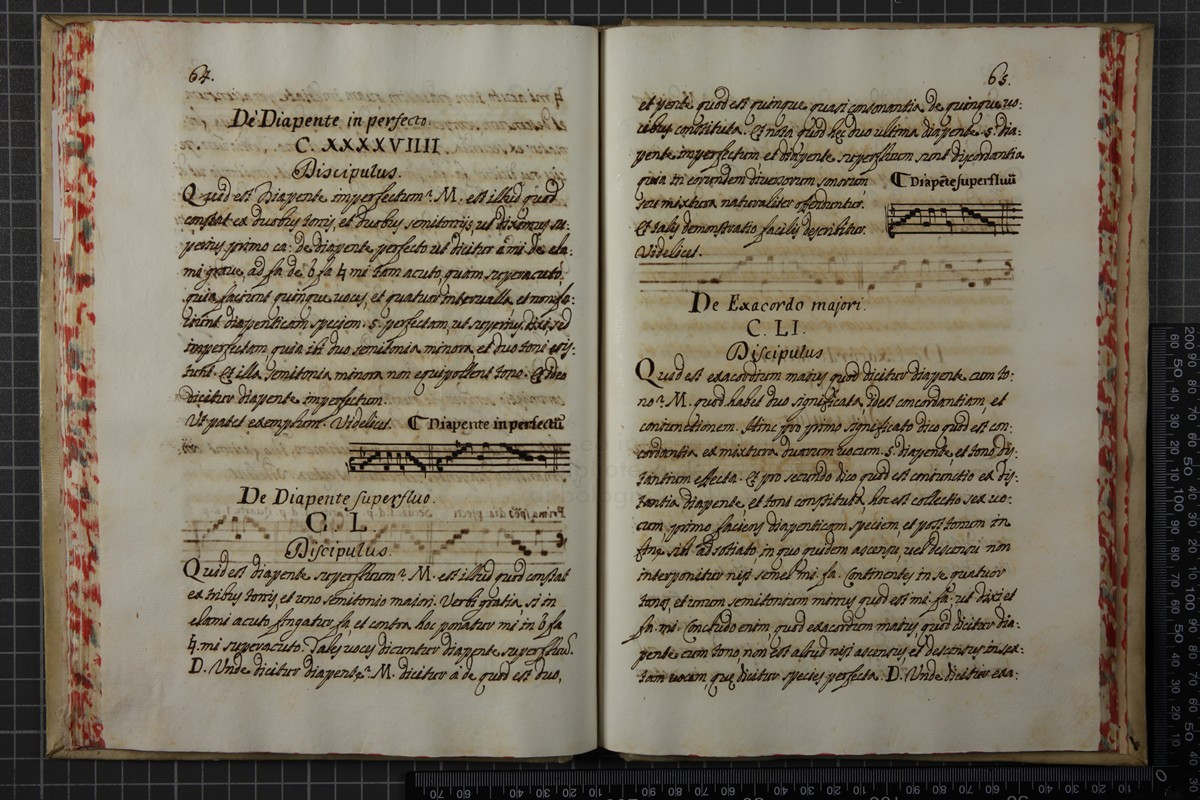 64.
De Diapente in perfecto.
C. XXXXVIIII.
Discipulus.
Quid est Diapente imperfectum? M. est illud quod
constat ex duobus tonis, et duobus semitonijs, ut diximus su:
perius primo ca: de diapente perfecto ut dicitur a mi de ela:
mi grave, ad fa de b fa ♮ mi tam acuto, quam superacuto,
quia faciunt quinque voces, et quatuor intervalla, et non fa:
ciunt diapenticam speciem. s. perfectam, ut superius dixi, sed
imperfectam, quia ibi duo semitonia minora, et duo toni exis:
tunt. Et illa semitonia minora non equipollent tono. Et ideo
dicitur diapente imperfectum.
Ut patet exemplum. Videlicet. ⁋ Diapente in perfectū
De Diapente superfluo.
C. L.
Discipulus.
Quid est diapente superfluum? M. est illud quod constat
ex tribus tonis, et uno semitonio maiori. Verbi gratia, si in
elami acuto fingatur fa, et contra hoc ponatur mi in b fa
♮ mi superacuto. Tales voces dicuntur diapente superfluū.
D. Unde dicitur diapente? M. dicitur a de quod est duo,
65.
et pente quod est quinque quasi consonantia de quinque vo:
cibus constituta. Et nota quod hec duo ultima diapente. s. dia:
pente imperfectum et diapente superfluum sunt discordantia
quia in eorundem diversorum sonorum ⁋ Diapēte superfluū
seu mixtura naturaliter offenduntur.
Et talis demonstratio facilis describitur.
Videlicet.
De Exacordo majori.
C. LI.
Discipulus
Quid est exacordum maius quod dicitur diapente cum to:
no? M. quod habet duo significata, idest concordantiam, et
coniunctionem. Hinc pro primo significato dico quod est con:
cordantia ex mixtura duarum vocum. s. diapente, et tono dis:
tantium effecta. Et pro secundo dico quod est coniunctio ex dis:
tantia diapente, et toni constituta, hoc est collectio sex vo:
cum primo faciens diapenticam speciem et post tonum in
fine sibi adsotiato in quo quidem ascensu, vel descensu non
interponitur nisi semel mi. fa. Continentes in se quatuor
tonos, et unum semitonium minus quod est mi. fa. ut dixi et
fa. mi. Concludo enim, quod exacordum maius, quod dicitur dia:
pente cum tono, non est aliud nisi ascensus, et descensus in sex:
tam vocem, que dicitur species perfecta. D. Unde dicitur exa: